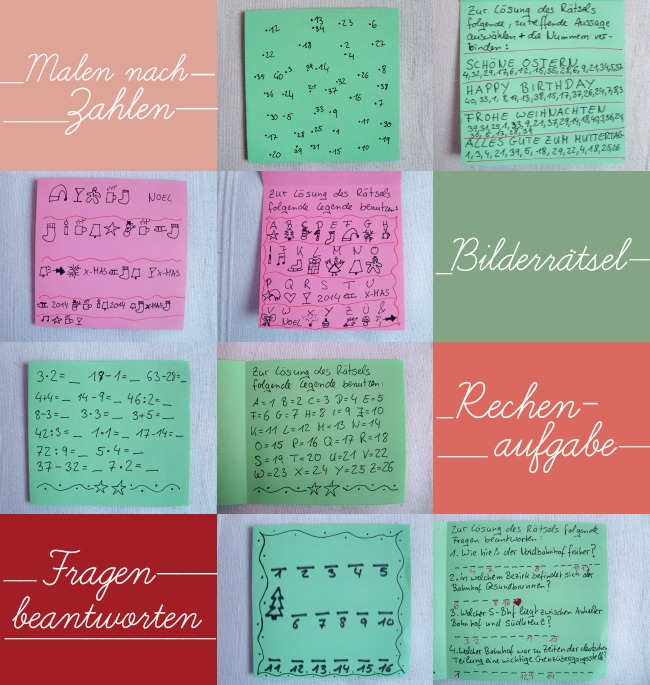 Malen nach
Zahlen
Zur Lösung des Rätsels
folgende, zutreffende Aussage
auswählen + die Nummern ver-
binden:
SCHÖNE OSTERN
HAPPY BIRTHDAY
FROHE WEIHNACHTEN
ALLES GUTE ZUM MUTTERTAG
1, 3, 4, 21, 39, 5, 18, 29, 22, 4, 18, 25 26
NOEL
X-MAS
X-MAS
2014
2014
X-MAS
Zur Lösung des Rätsels
folgende Legende benutzen:
A B C D E F G H
I J K L M N O
P Q R S T U
2014 X-MAS
V W X Y Z Ü &
NOEL
Bilderrätsel
3·2=_ 18-1=_ 63-28=_
4+4=_ 14-9=_ 46:2=_
8-3=_ 3·3=_ 3+5=_
42:3=_ 1·1=_ 17-14=_
72:9=_ 5·4=_
37-32=_ 7·2=_
Zur Lösung des Rätsels
folgende Legende benutzen:
A=1 B=2 C=3 D=4 E=5
F=6 G=7 H=8 I=9 J=10
K=11 L=12 M=13 N=14
O=15 P=16 Q=17 R=18
S=19 T=20 U=21 V=22
W=23 X=24 Y=25 Z=26
Rechen-
aufgabe
Fragen
beantworten
1 2 3 4 5
6 7 8 9 10
11 12 13 14 15 16
Zur Lösung des Rätsels folgende
Fragen beantworten:
1. Wie hieß der Nordbahnhof früher?
2. in welchem Bezirk befindet sich der
Bahnhof Gesundbrunnen?
3. Welcher S-Bhf liegt zwischen Anhalter
Bahnhof und Südkreuz?
4. Welcher Bahnhof war zu Zeiten der deutschen
Teilung eine wichtige Grenzübergangsstelle?